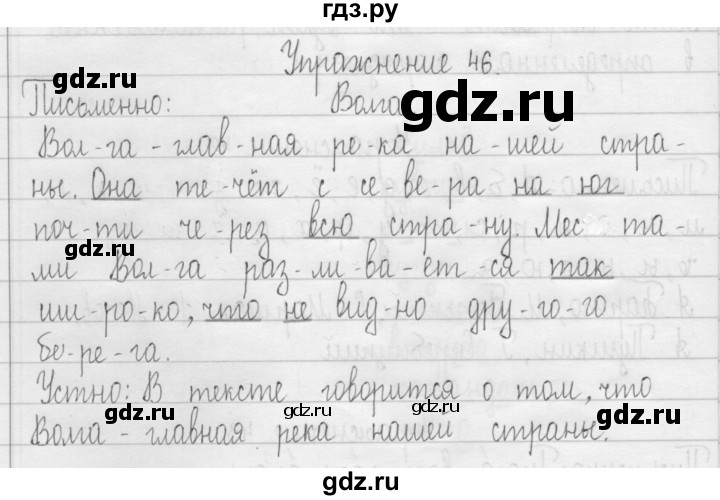 гдз.ру
Упражнение 46.
Письменно: Волга
гдз.ру
Вол-га - глав-ная ре-ка на-шей стра-
ны. Она те-чёт с се-ве-ра на юг
поч-ти че-рез всю стра-ну Мес та-
гдз.ру
ми Вол-га раз-ли-ва-ет-ся так
ши-ро-ко, что не вид-но дру-го-го
бе-ре-га.
Устно: В тексте говорится о том, что
гдз.ру гдз.ру гдз.ру
Волга - главная река нашей страны.
гдз.ру